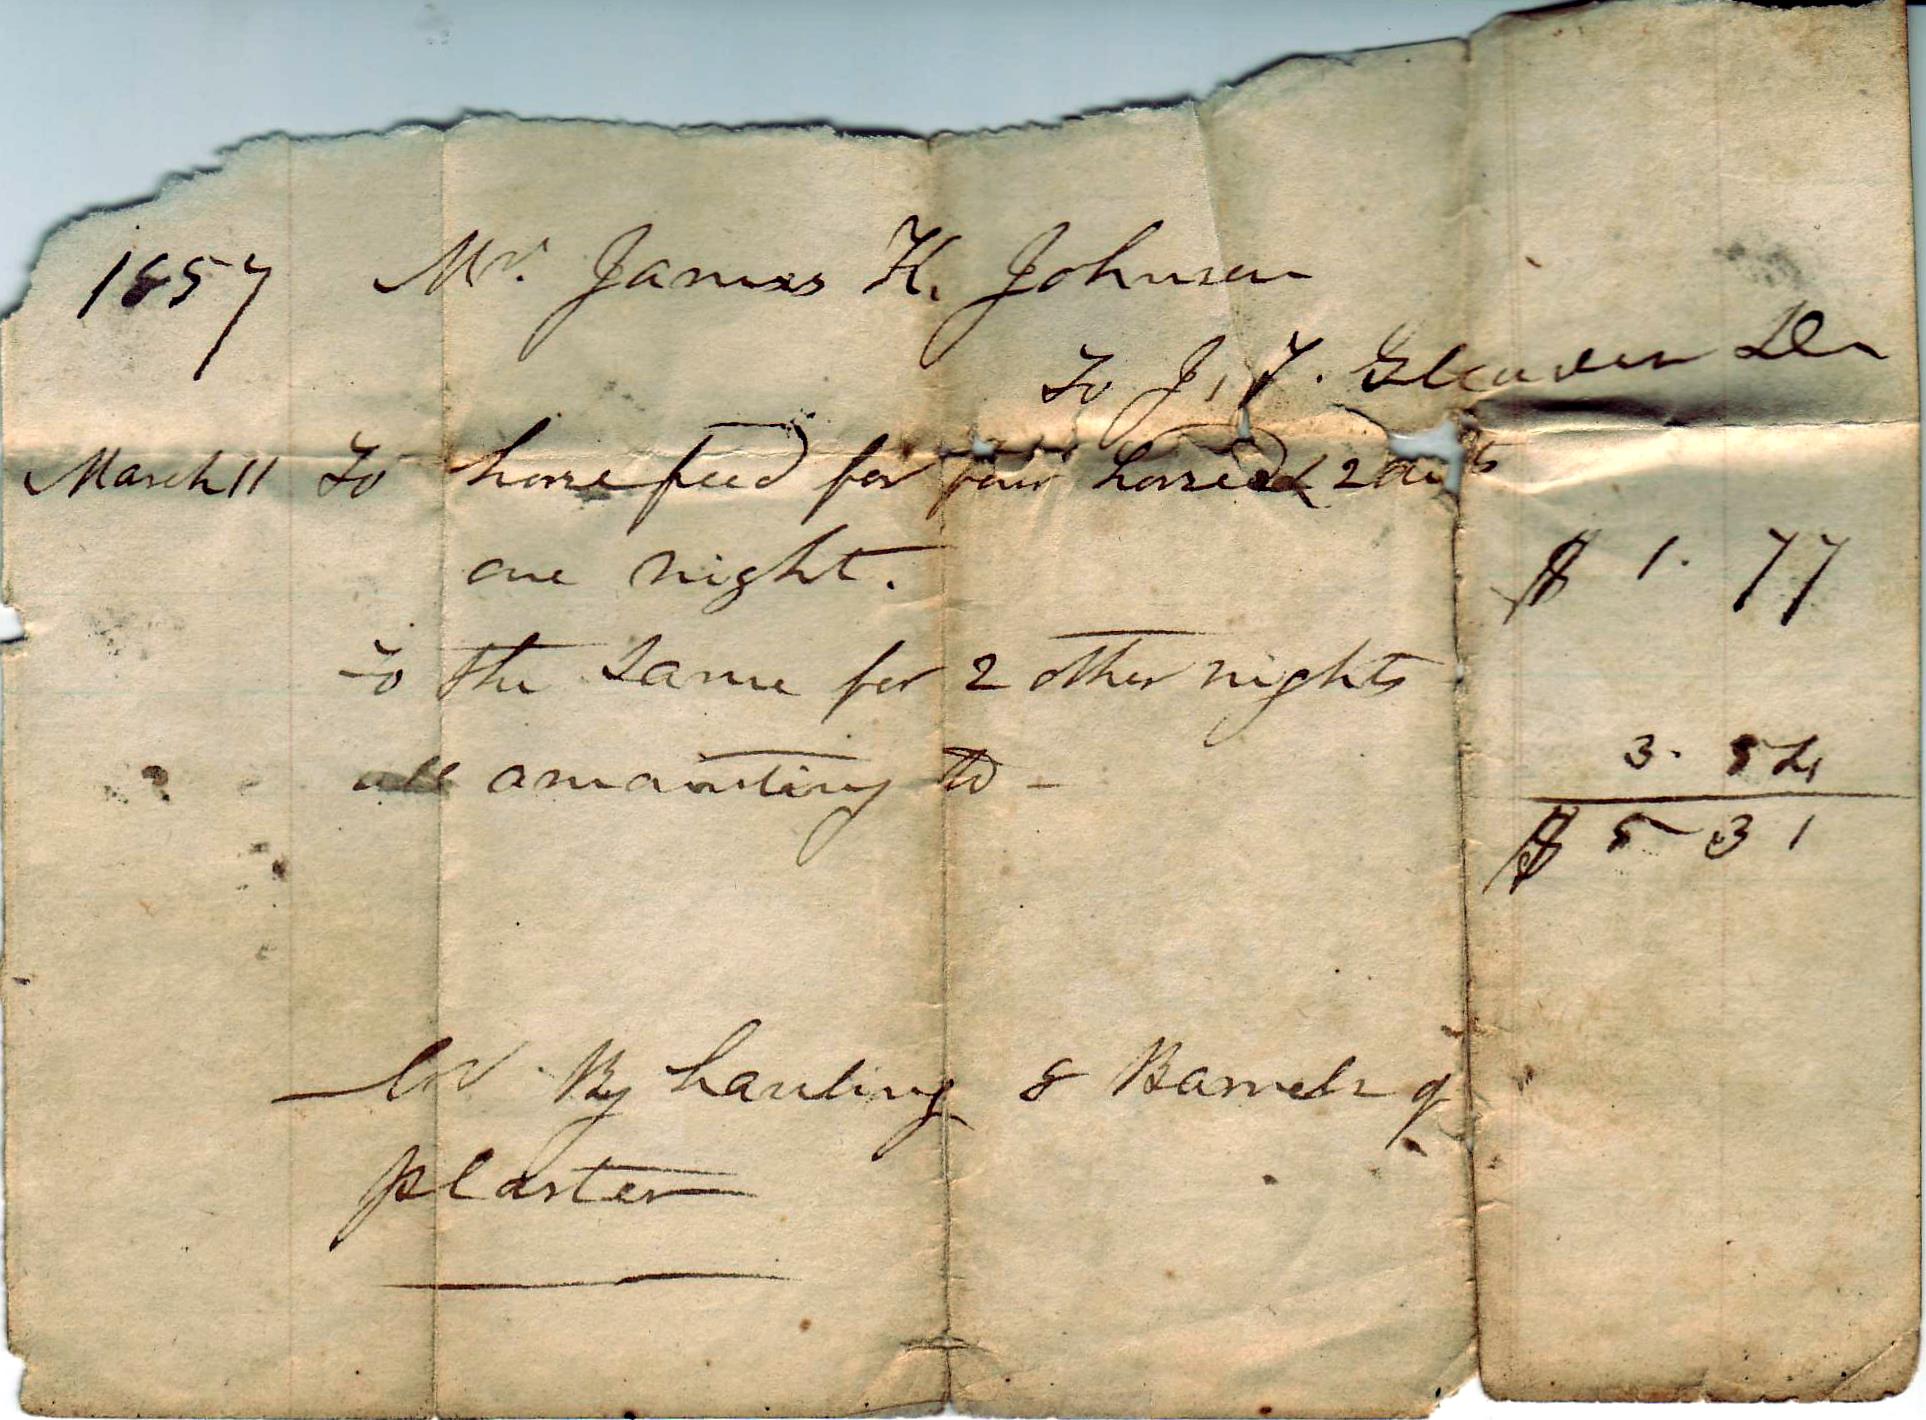 1857 Mr. James H. Johnson
To J. T. Gleaven Dr
March 11 To horse feed for four horses & 2
one night. $ 1. 77
To the same for 2 other nights
3. 54
all amounting to - $ 5 31
Cr. By hauling 8 Barrels of
plaster